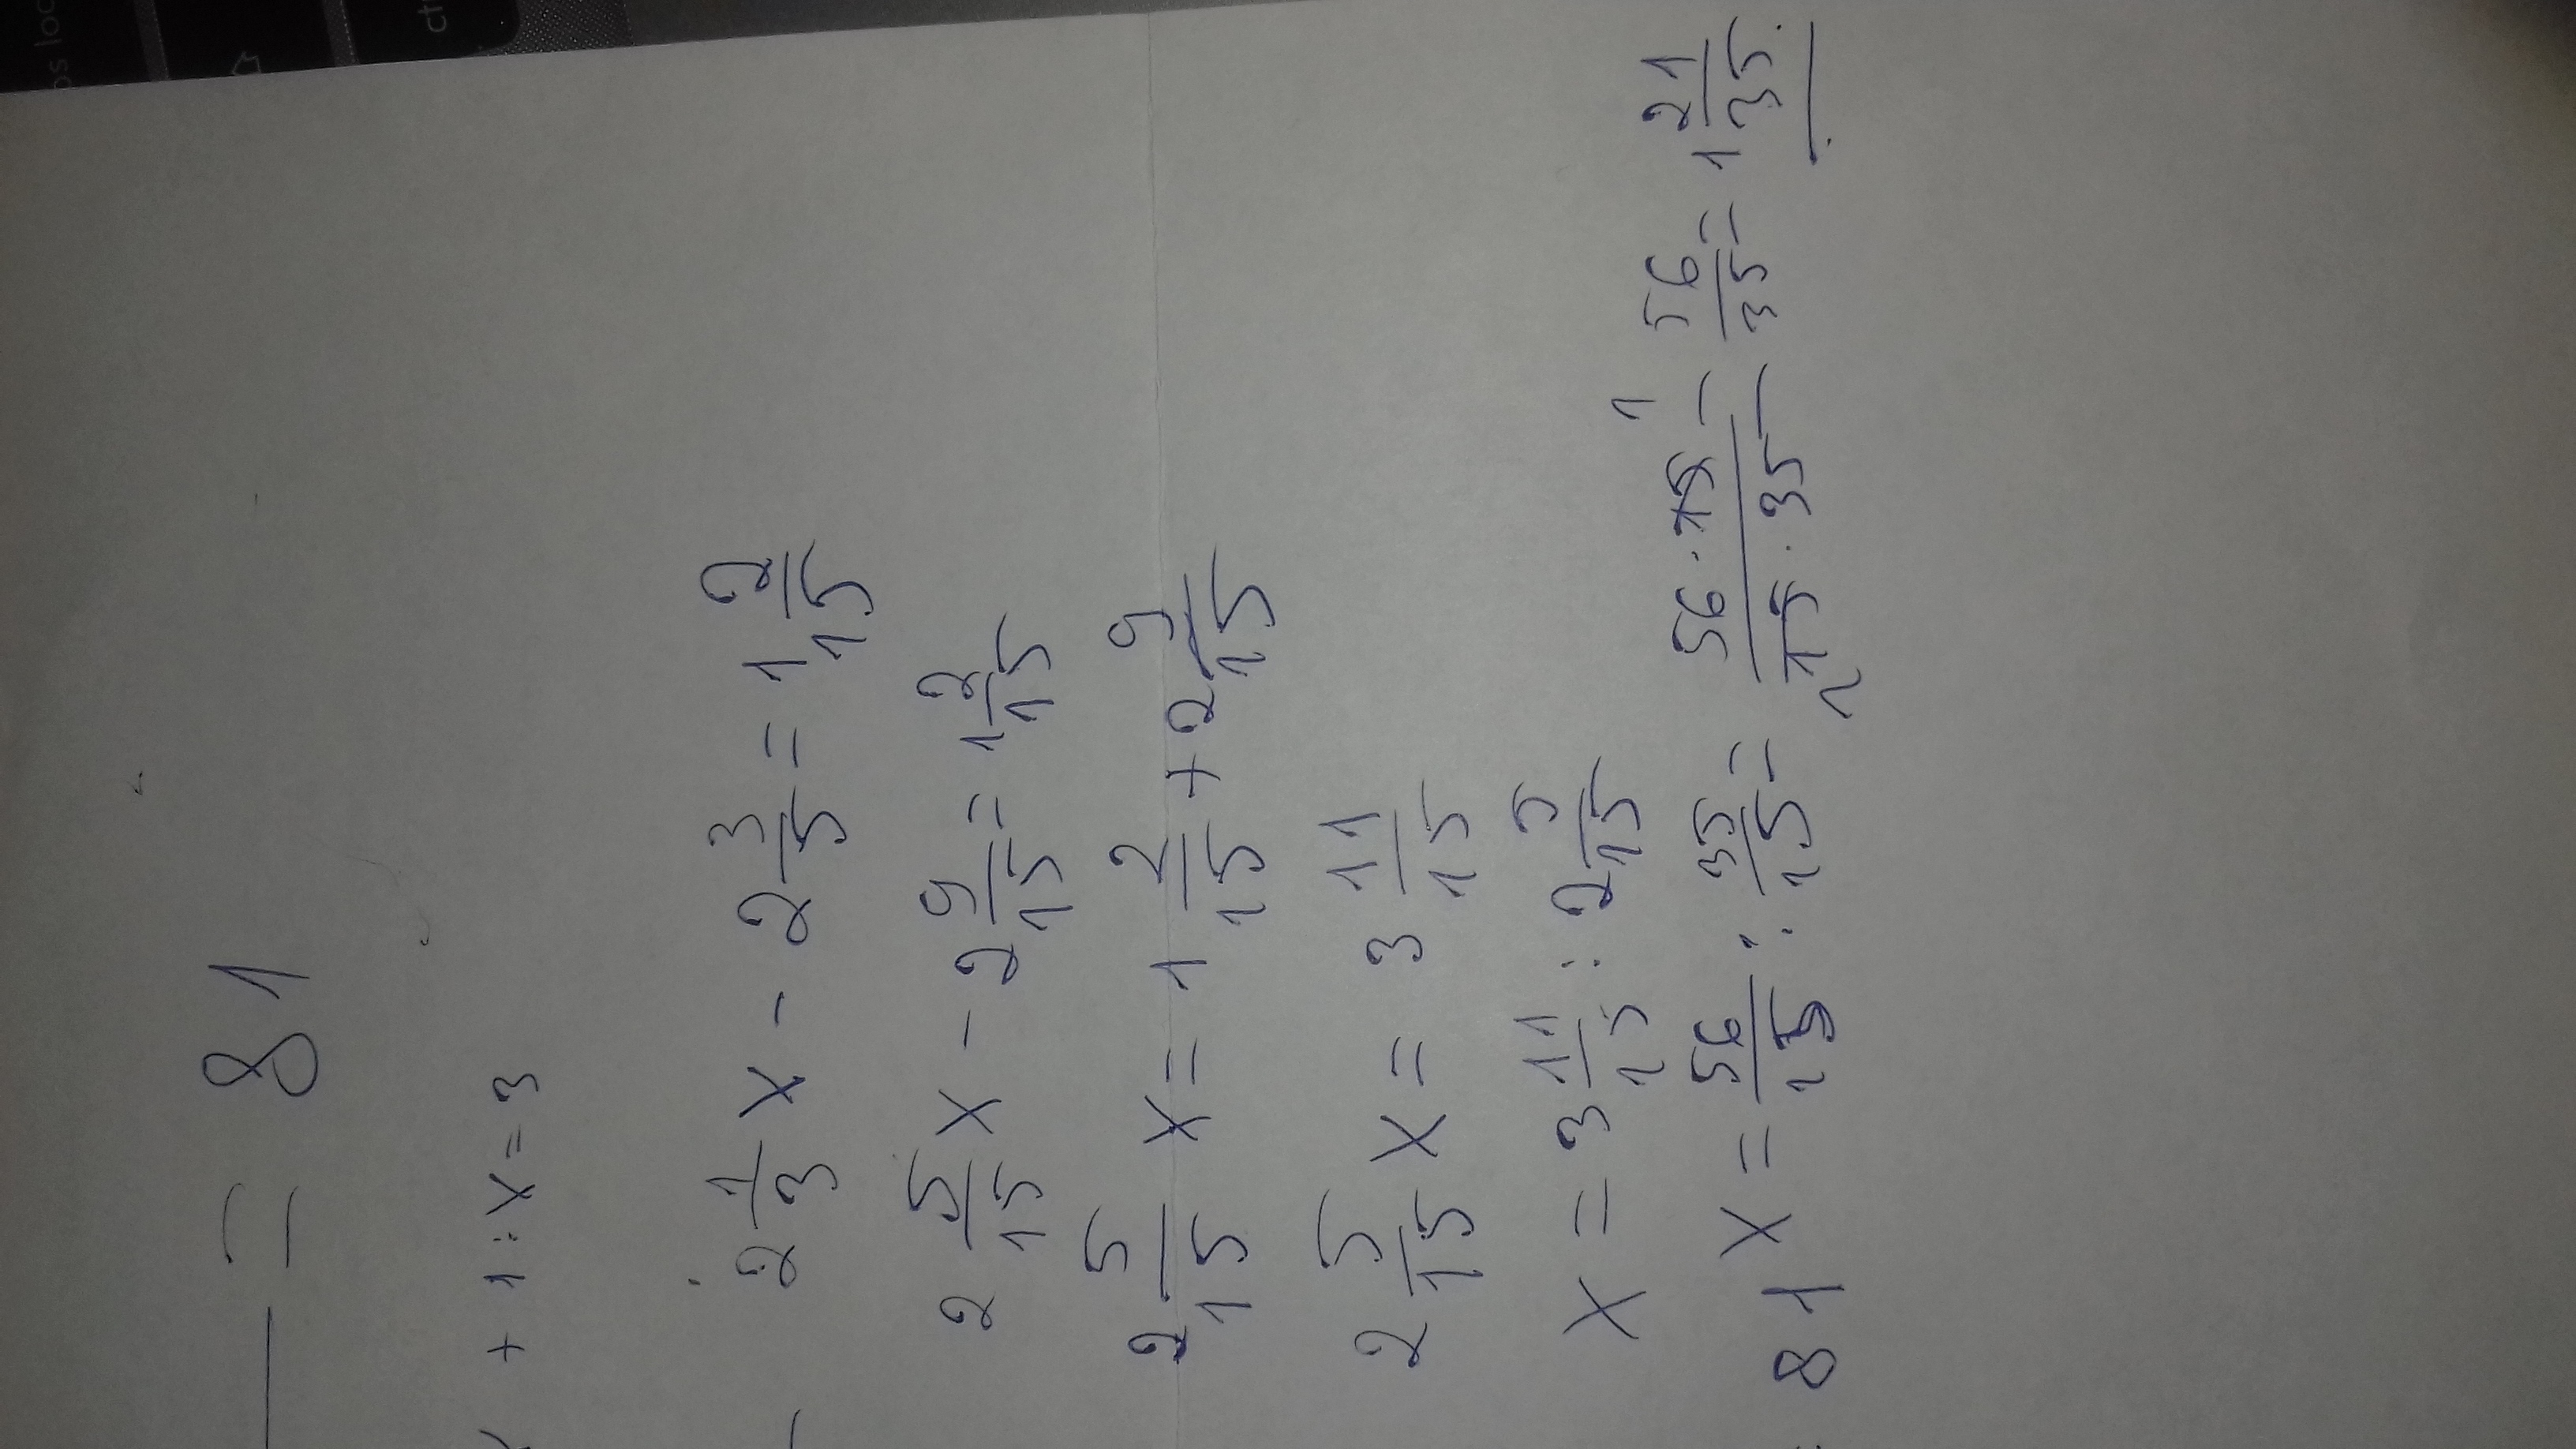 = 81
+ 1 : x = 3
2 1/3 x - 2 3/5 = 1 2/15
2 5/15 x - 2 9/15 = 1 2/15
2 5/15 x = 1 2/15 + 2 9/15
2 5/15 x = 3 11/15
x = 3 11/15 : 2 5/15
81 x = 56/15 : 35/15 = 56 · 15 1 / 1 15 · 35 = 56/35 = 1 21/35